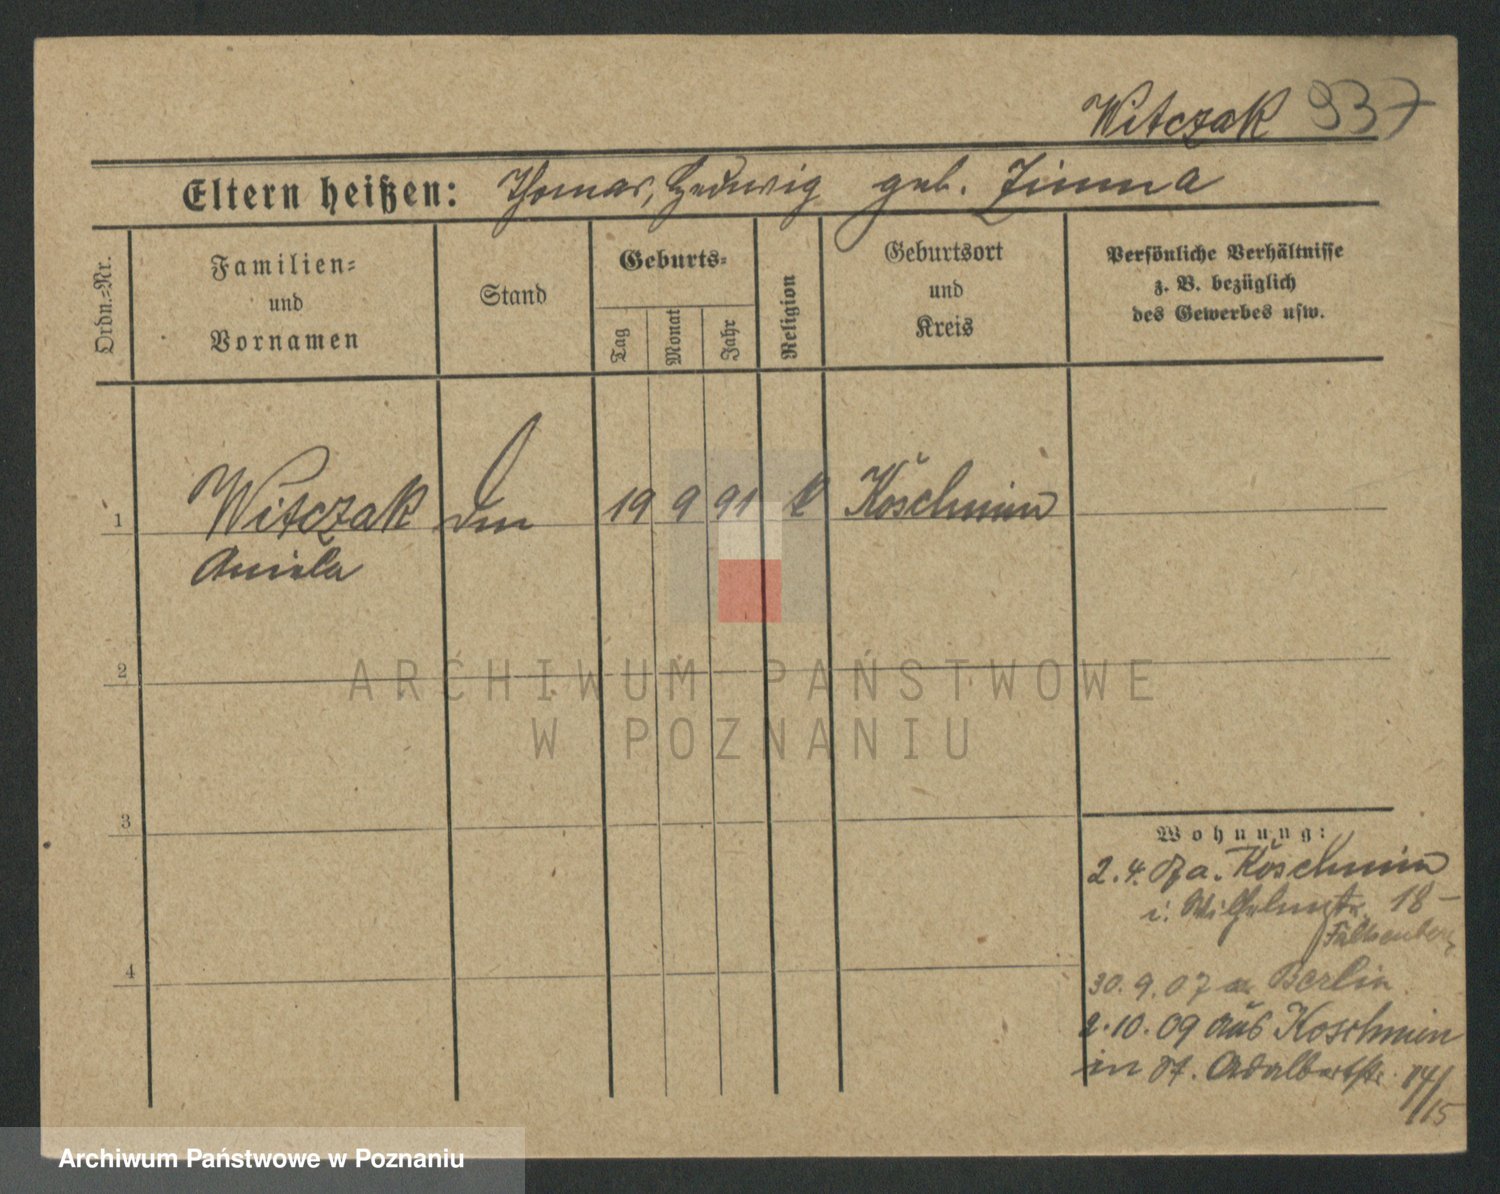 Witczak 937
Eltern heißen: Thomas, Hedwig geb. Zimna
Ordn.=Nr.
Familien=
und
Vornamen
Stand
Geburts=
Tag
Monat
Jahr
Religion
Geburtsort
und
Kreis
Persönliche Verhältnisse
z. B. bezüglich
des Gewerbes usw.
1 Witczak 19 9 91 k Koschmin
Aniela
2
3
4
Wohnung:
2.4.07 a. Koschmin
i. Wilhelmstr. 18 –
Falkenberg
30.9.07 a. Berlin
2.10.09 aus Koschmin
in St. Adalbertstr. 14/15
ARCHIWUM PAŃSTWOWE
W POZNANIU
Archiwum Państwowe w Poznaniu